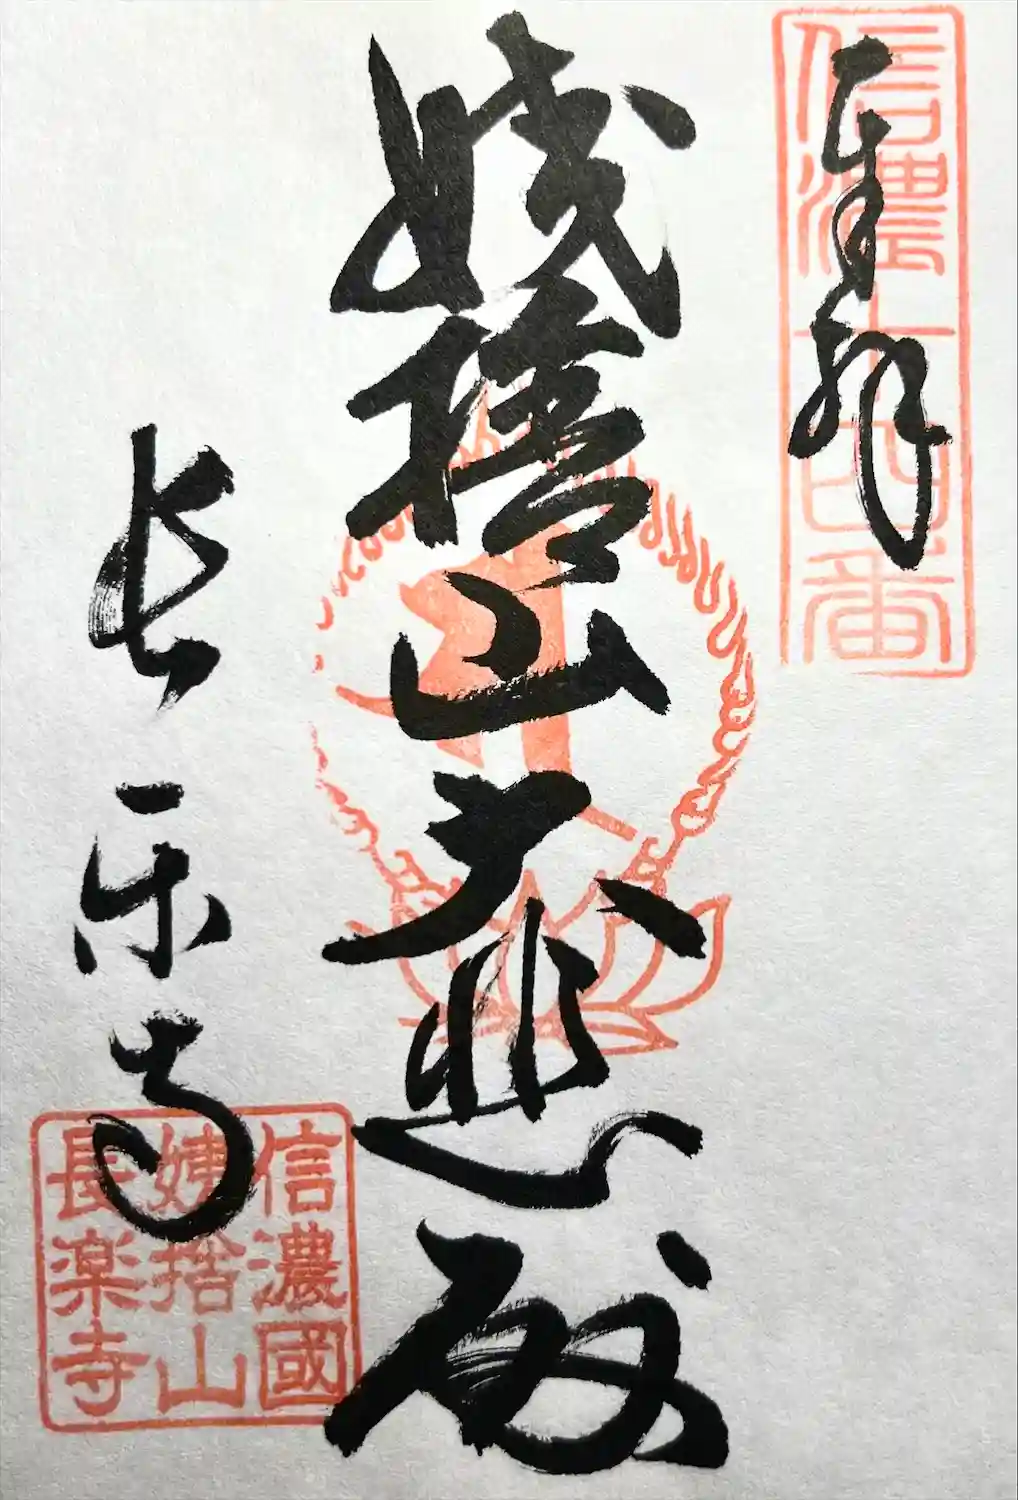 奉拝
信濃十四番
姨捨山大悲殿
長楽寺
信濃國
姨捨山
長楽寺